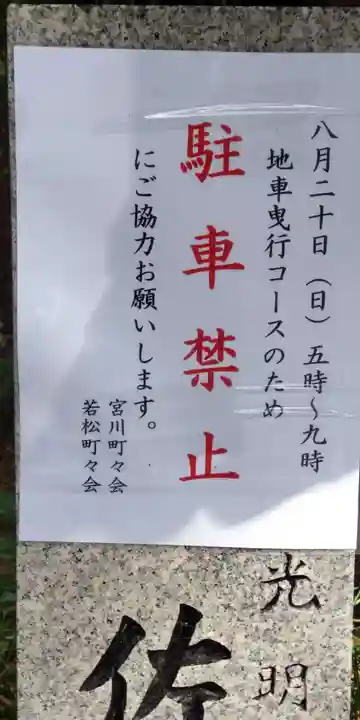 八月二十日（日）五時〜九時
地車曳行コースのため
駐車禁止
にご協力お願いします。
宮川町々会
若松町々会
光明
佐